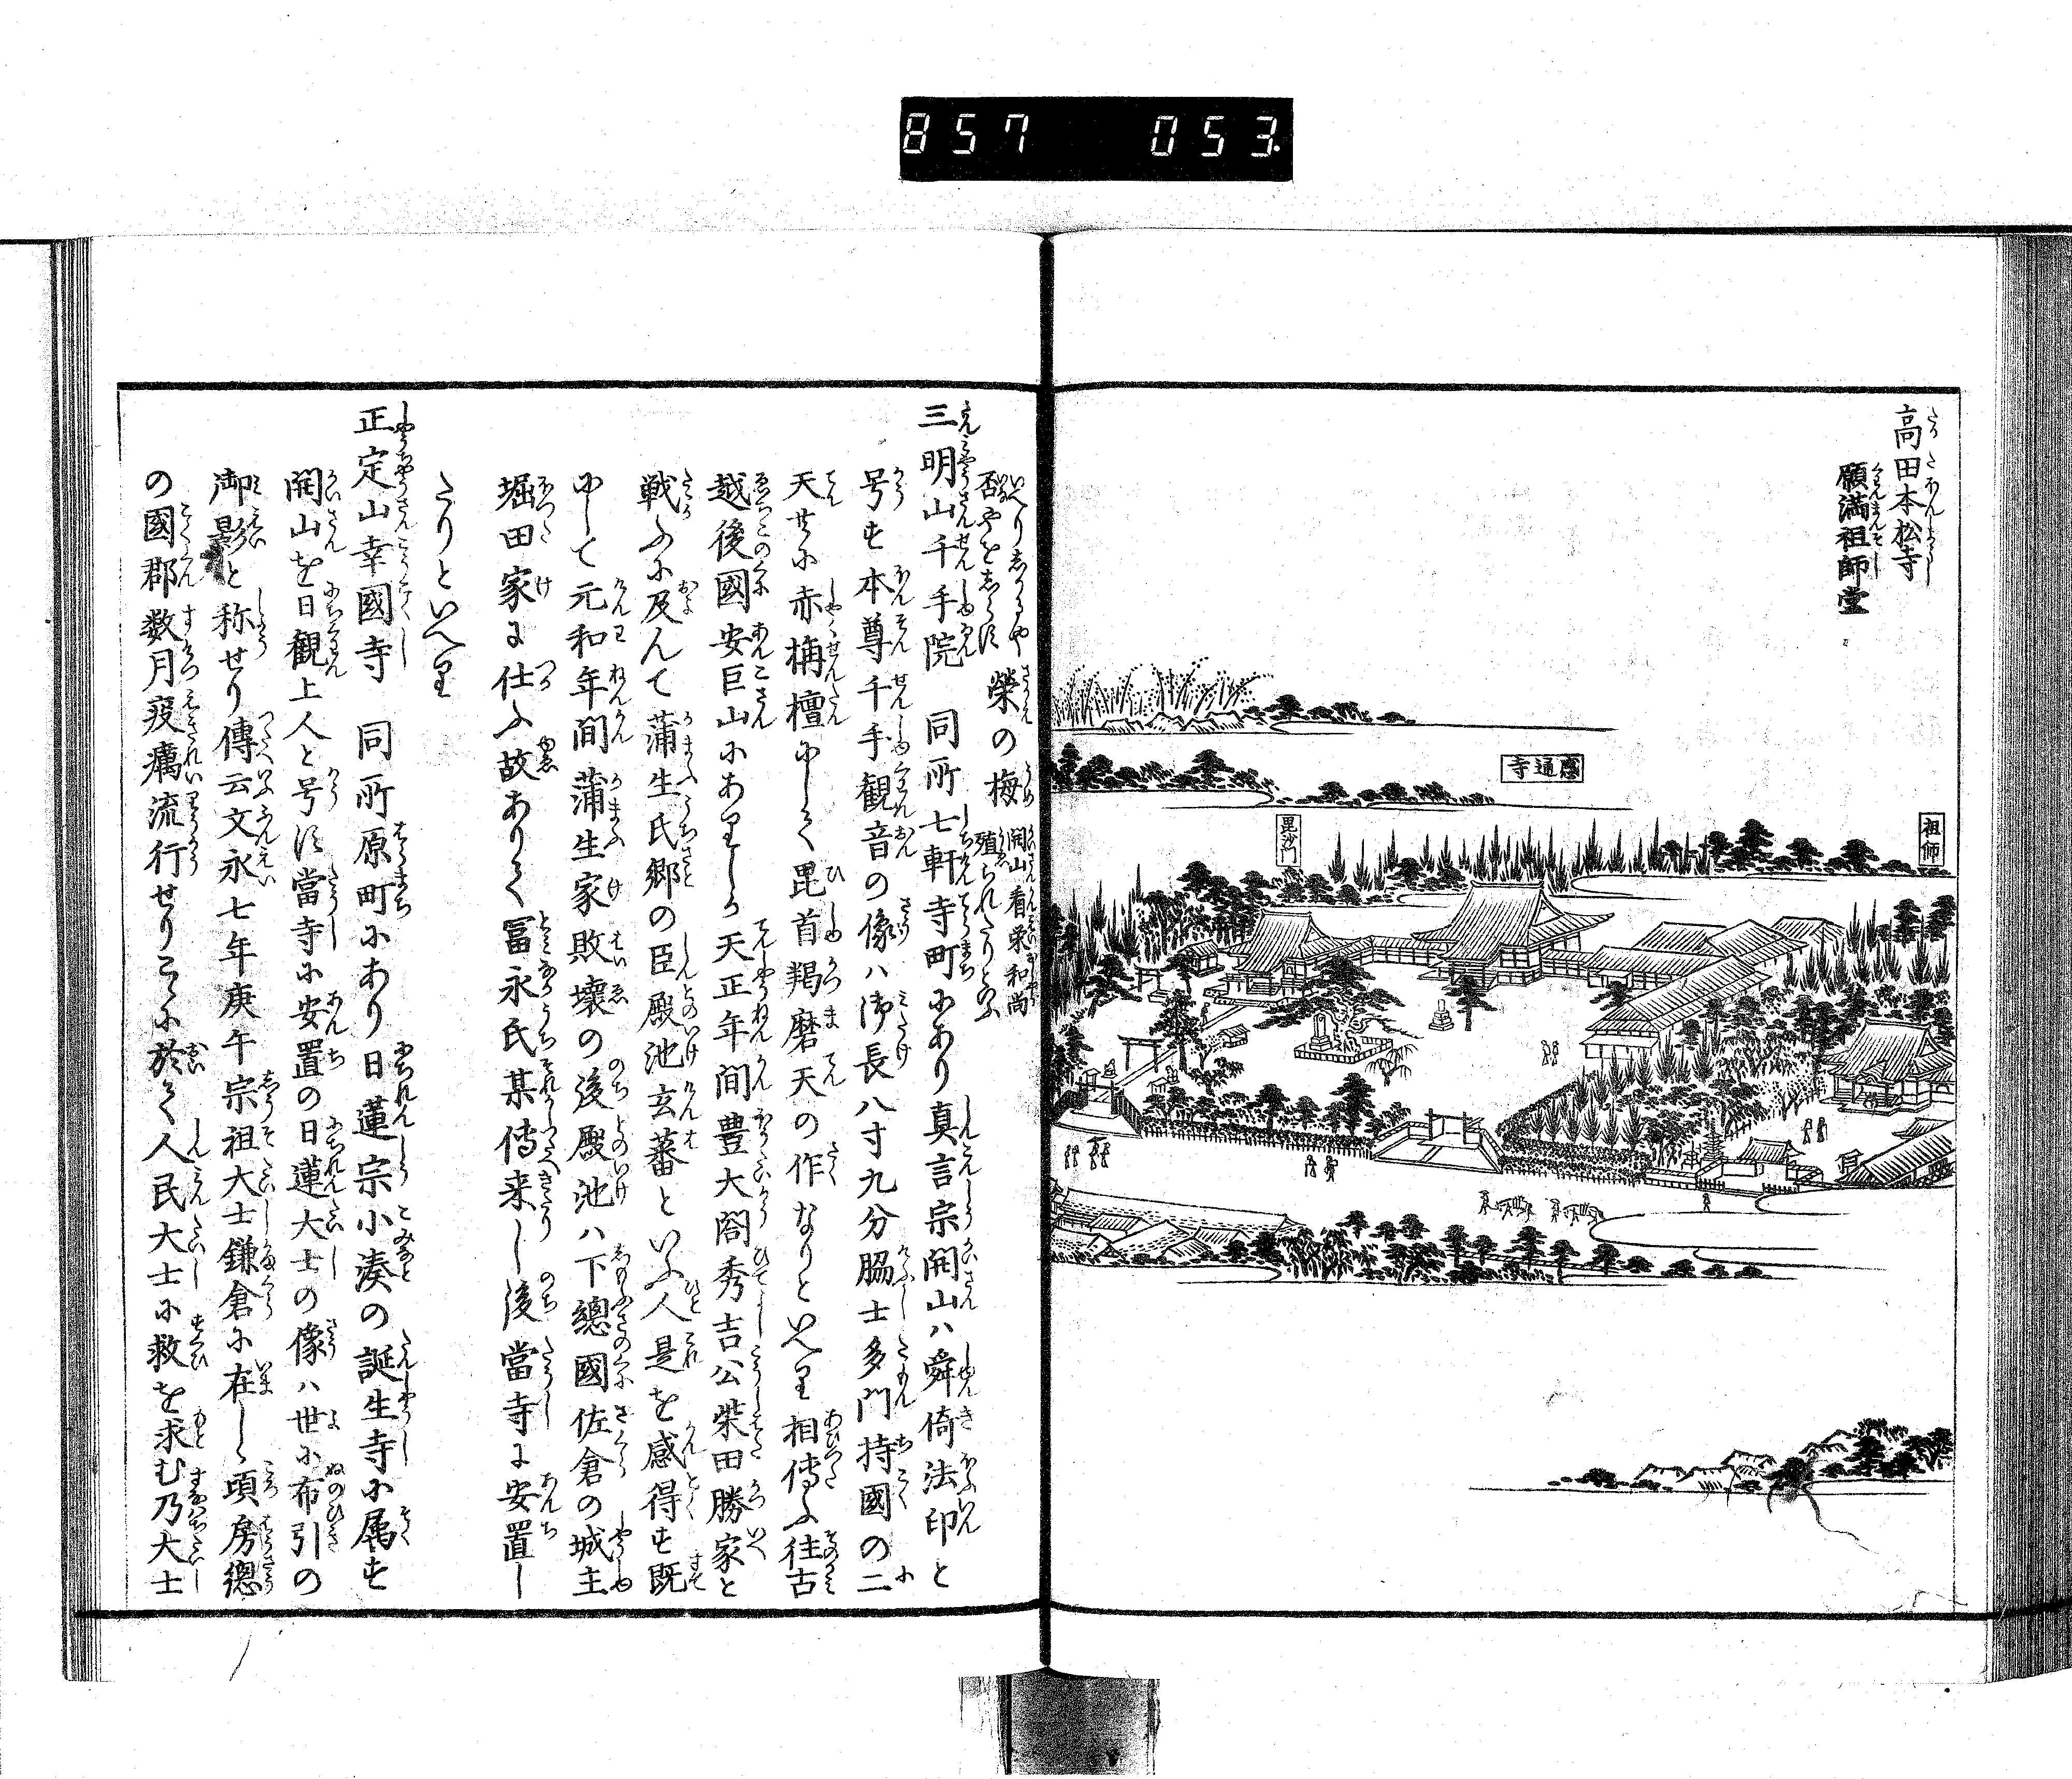 857 053.
高田本松寺
願満祖師堂
祖師
感通寺
毘沙門
いへりしかるや
否やをしらず
榮の梅
開山看栄和尚
殖られたりと云ふ
三明山千手院 同所七軒寺町にあり真言宗開山ハ舜倚法印と
号す本尊千手観音の像ハ御長八寸九分脇士多門持國の二
天共に赤栴檀にして毘首羯磨天の作なりといへり相傳ふ往古
越後國安巨山にありしか天正年間豊大閤秀吉公柴田勝家と
戦ふに及んて蒲生氏郷の臣殿池玄蕃といふ人是を感得す既
にして元和年間蒲生家敗壊の後殿池ハ下總國佐倉の城主
堀田家に仕ふ故ありて冨永氏某傳来し後當寺に安置し
たりといへり
正定山幸國寺 同所原町にあり日蓮宗小湊の誕生寺に属す
開山を日観上人と号す當寺に安置の日蓮大士の像ハ世に布引の
御影と称せり傳云文永七年庚午宗祖大士鎌倉に在しゝ頃房總
の國郡数月疫癘流行せりこゝに於て人民大士に救を求む乃大士